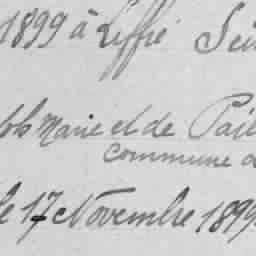 1899 à Leffré Sei
Marie et de Pail
commune d
le 17 Novembre 1899